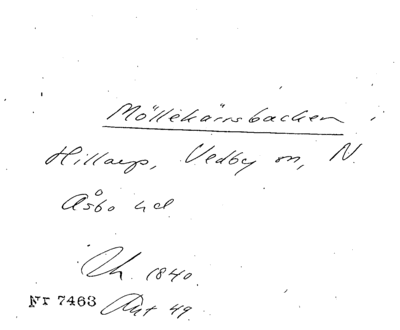 Möllekärrsbacken
Hillarp, Vedby sn, N.
Åsbo hd
Uh. 1840.
Nr 7463 Ant 49